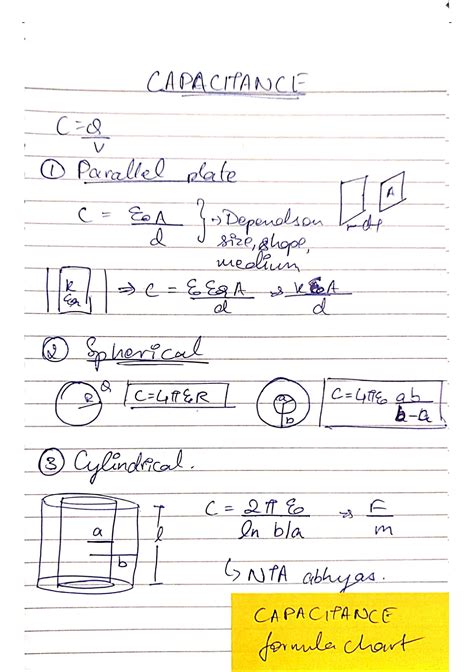 CAPACITANCE
C = Q/V
① Parallel plate
C = ε₀A/d } → Depends on size, shape, medium
A
d
K
εr
⇒ C = ε₀εrA/d → kε₀A/d
② Spherical
R Q C=4πε₀R
a b C=4πε₀ ab/b-a
③ Cylindrical.
a b l
C = 2πε₀/ln b/a → F/m
↳ NTA abhyas.
CAPACITANCE
formula chart